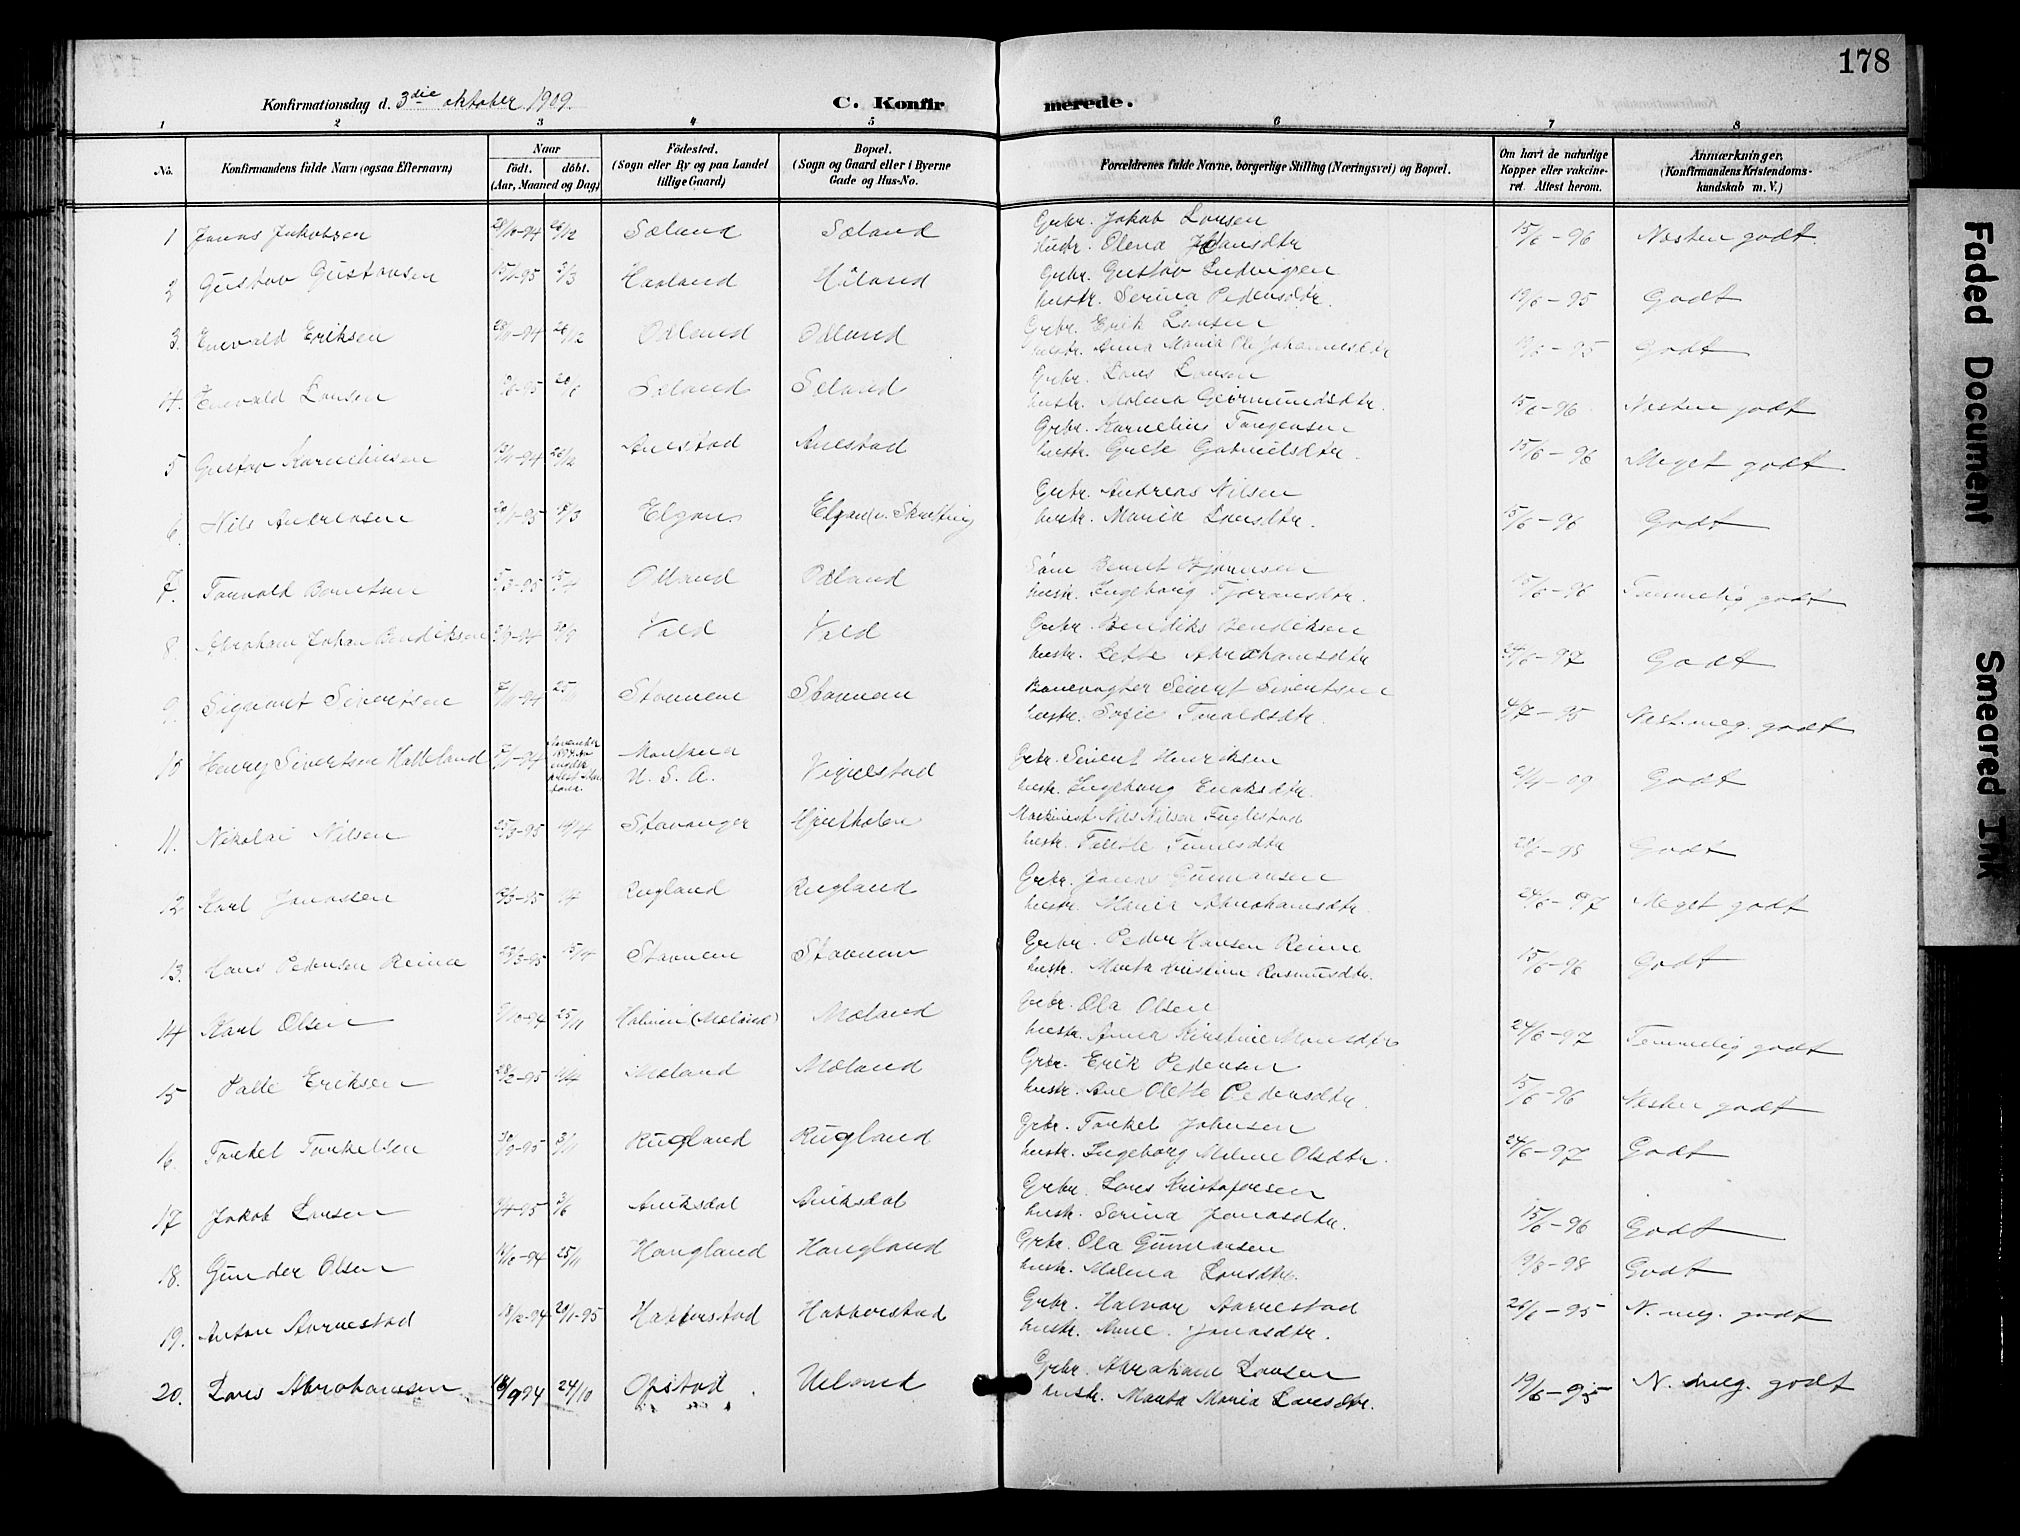 178
Konfirmationsdag d. 3die oktober 1909.
C. Konfirmerede.
1 2 3 4 5 6 7 8
No.
Konfirmandens fulde Navn (ogsaa Efternavn)
Naar
födt. döbt.
(Aar, Maaned og Dag)
Födested.
(Sogn eller By og paa Landet
tillige Gaard)
Bopæl.
(Sogn og Gaard eller i Byerne
Gade og Hus-No.
Forældrenes fulde Navne, borgerlige Stilling (Næringsvei) og Bopæl.
Om havt de naturlige
Kopper eller vakcine-
ret. Attest herom.
Anmærkninger.
(Konfirmandens Kristendoms-
kundskab m. V.)
1 Jonas Jakobsen Sæland Sæland Grbr. Jakob Larsen 15/6-96 Næsten godt.
hustr. Olena
2 Gustav Gustavsen Haaland Håland Grbr. Gustav Ludvigsen
hustr. Serina Pedersdtr. 19/6-95 Godt
3. Enevald Eriksen Odland Odland Grbr. Erik Larsen
hustr. Anna Maria Johannesdtr 19/6-95 Godt
4. Enevald Larsen Sæland Sæland Grbr. Lars Larsen
hustr. Malena Geirmundsdtr. 15/6-96 Næsten godt
5 Gustav Kornelinsen Anestad Anestad Grbr. Kornelius Torgersen
hustr. Grete Gabrielsdtr. 15/6-96 Meget godt
6. Nils Andreasen Elgan Grbr. Andreas Nilsen
hustr. Maria Larsdtr. 15/6-96 Godt
7. Torvald Berntsen 5/3-95 Odland Odland Bernt Bjørnsen
hustr. Ingeborg 15/6-96 Temmelig godt
8. Abraham Johan Bendiksen Vold Vold Grbr. Bendiks Bendiksen
hustr. Lette Abrahamsdtr 24/6-97 Godt
9. Sigvart Sivertsen Stavnem Stavnem Banevogter Sivert Sivertsen
hustr. Sofie 4/7-95 Næst. meg. godt
10 Henry Sivertsen Halleland U. S. A. Vigrestad Grbr. Sivert Henriksen
hustr. Ingeborg Eriksdtr. 21/4-09 Godt
11. Nikolai Nilsen 25/3-95 14/4 Stavanger Maskinist Nils Nilsen Fuglestad
hustr. Godt
12 Karl Jonassen Rugland Rugland Grbr. Jonas Gunnarsen
hustr. Maria Abrahamsdtr. 24/6-97 Meget godt
13. Hans Pedersen Reime 23/3-95 15/4 Stavnem Stavnem Grbr. Peder Hansen Reime
hustr. Marta Kristine Rasmusdtr. 15/6-96 Godt
14 Karl Olsen 25/11 (Mæland) Mæland Grbr. Ola Olsen
hustr. Anna Kirstine Monsdtr 24/6-97 Temmelig godt
15 Palle Eriksen 28/2-95 Mæland Mæland Grbr. Erik Pedersen
hustr. Ane Olette Pedersdtr. 15/6-96 Næsten godt
16. Torkel Torkelsen Rugland Rugland Grbr. Torkel Johnsen
hustr. Ingeborg Malene Olsdtr. 24/6-97 Godt
17 Jakob Larsen 3/6 Aniksdal Aniksdal Grbr. Lars Kristofersen
hustr. Serina Jonasdtr. 15/6-96 Godt
18. Gunder Olsen 25/11 Haugland Haugland Grbr. Ola Gunnarsen
hustr. Malena Larsdtr. 19/8-98 Godt
19. Anton Aarrestad 18/12-94 20/1-95 Habberstad Habberstad Grbr. Halvar Aarrestad 26/6-95 N. meg. godt
hustr. Anne Jonasdtr.
20. Lars Abrahamsen 24/10 Opstad Ueland Grbr. Abraham Larsen
hustr. Marta Maria Larsdtr. 19/6-95 N. meg. godt
Faded Document
Smeared Ink